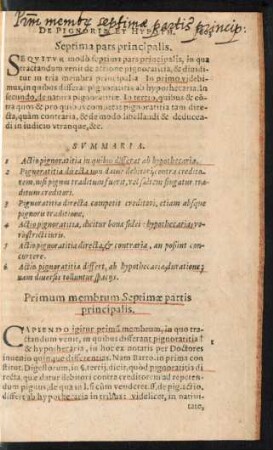 Primũ membrũ septima partis princip:
DE PIGNORIB. ET HYPOTH.
Septima pars principalis.
SEQVITVR modò septima pars principalis, in qua
tractandum venit de actione pignoratitia, & diuidi-
tur in tria membra principalia. In primo videbi-
mus, in quibus differat pignoratitia ab hypothecaria. In
secundo, de natura pignoratitiæ. In tertio, quibus & con-
tra quos & pro quo, vt competat pignoratitia tam dire-
cta, quàm contraria, & de modo libellandi & deducen-
di in iudicio vtranque, &c.
SVMMARIA.
1 Actio pignoratitia in quibus differat ab hypothecaria.
2 Pignoratitia directa non datur debitori contra credito-
rem, nisi pignus traditum fuerit, vel saltem fingatur
traditum creditori.
3 Pignoratitia directa competit creditori, etiam absque
pignoris traditione.
4 Actio pignoratitia, dicitur bonæ fidei: hypothecaria ve-
rò stricti iuris.
5 Actio pignoratitia directa, & contraria, an possint con-
currere.
6 Actio pignoratitia differt, ab hypothecaria, duratione;
nam diuersis tolluntur spaciis.
Primum membrum Septimæ partis
principalis.
CAPIENDO igitur primũ membrum, in quo tra-
ctandum venit, in quibus differant pignoratitia
& hypothecaria, in hoc ex notatis per Doctores
inuenio quinque differentias. Nam Barto. in prima con-
stituit Digestorum, in §. tertij, dicit, quòd pignoratitia di-
recta, quæ datur debitori contra creditorem ad repeten-
dum pignus, de qua in l. si cùm venderet. ff. de pig. actio,
differt ab hypothecaria in tribus: videlicet, in natiui-
tate,